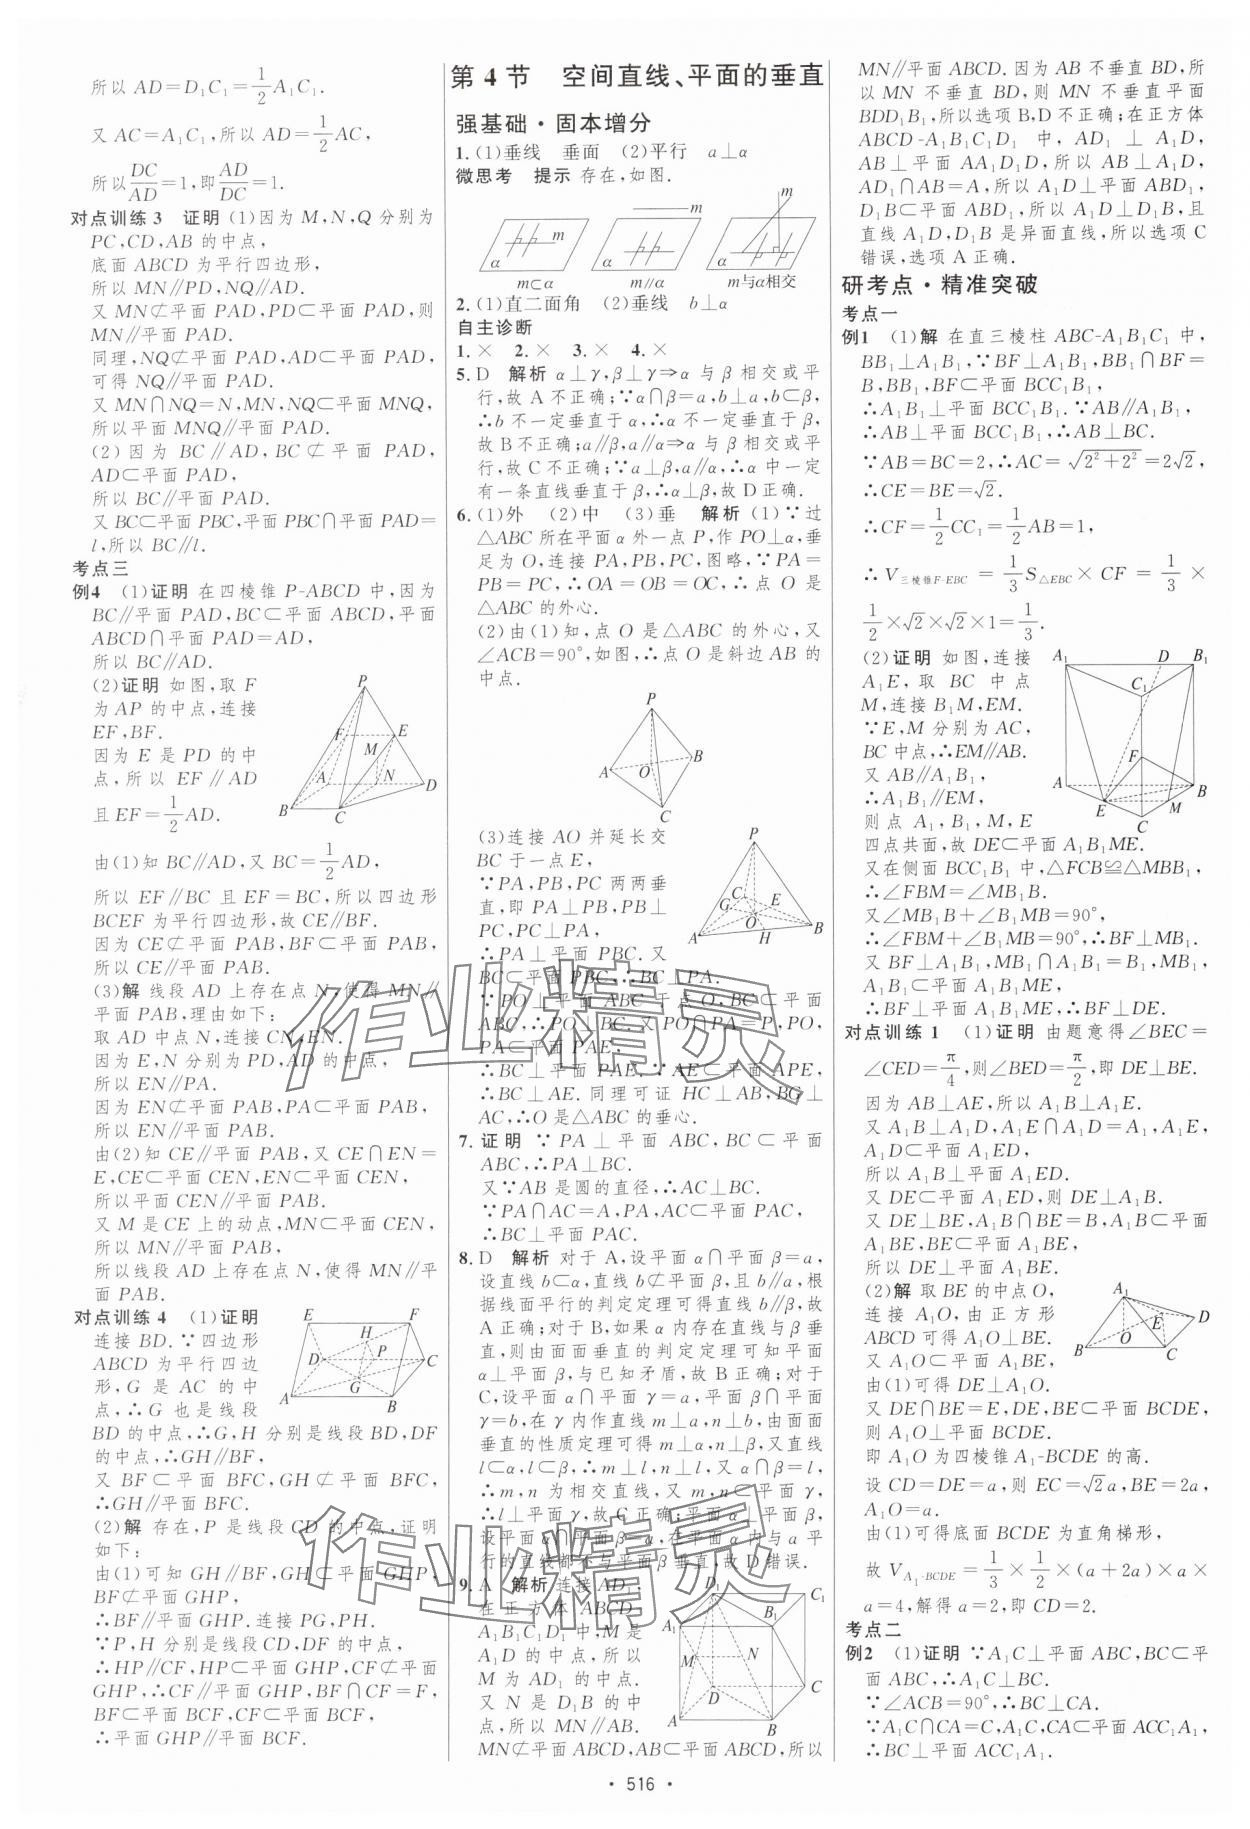 所以 AD=D₁C₁=1/2A₁C₁.
又 AC=A₁C₁,所以 AD=1/2AC,
所以DC/AD=1,即AD/DC=1.
对点训练3 证明 (1)因为 M,N,Q 分别为
PC,CD,AB 的中点,
底面 ABCD 为平行四边形,
所以 MN∥PD,NQ∥AD.
又 MN⊄平面 PAD,PD⊂平面 PAD,则
MN∥平面 PAD.
同理,NQ⊄平面 PAD,AD⊂平面 PAD,
可得 NQ∥平面 PAD.
又 MN∩NQ=N,MN,NQ⊂平面 MNQ,
所以平面 MNQ∥平面 PAD.
(2)因为 BC∥AD,BC⊄平面 PAD,
AD⊂平面 PAD,
所以 BC∥平面 PAD.
又 BC⊂平面 PBC,平面 PBC∩平面 PAD=
l,所以 BC∥l.
考点三
例4 (1)证明 在四棱锥 P-ABCD 中,因为
BC∥平面 PAD,BC⊂平面 ABCD,平面
ABCD∩平面 PAD=AD,
所以 BC∥AD.
(2)证明 如图,取 F
为 AP 的中点,连接
EF,BF.
因为 E 是 PD 的中
点,所以 EF∥AD
且 EF=1/2AD.
P
F
E
M
A
N
D
B
C
由(1)知 BC∥AD,又 BC=1/2AD,
所以 EF∥BC 且 EF=BC,所以四边形
BCEF 为平行四边形,故 CE∥BF.
因为 CE⊄平面 PAB,BF⊂平面 PAB,
所以 CE∥平面 PAB.
(3)解 线段 AD 上存在点 N,使得 MN∥
平面 PAB.理由如下:
取 AD 中点 N,连接 CN,EN.
因为 E,N 分别为 PD,AD 的中点,
所以 EN∥PA.
因为 EN⊄平面 PAB,PA⊂平面 PAB,
所以 EN∥平面 PAB.
由(2)知 CE∥平面 PAB,又 CE∩EN=
E,CE⊂平面 CEN,EN⊂平面 CEN,
所以平面 CEN∥平面 PAB.
又 M 是 CE 上的动点,MN⊂平面 CEN,
所以 MN∥平面 PAB,
所以线段 AD 上存在点 N,使得 MN∥平
面 PAB.
对点训练4 (1)证明
连接 BD.∵四边形
ABCD 为平行四边
形,G 是 AC 的中
点,∴G 也是线段
E
F
H
D
P
C
G
A
B
BD 的中点,∴G,H 分别是线段 BD,DF
的中点,∴GH∥BF.
又 BF⊂平面 BFC,GH⊄平面 BFC,
∴GH∥平面 BFC.
(2)解 存在,P 是线段 CD 的中点,证明
如下:
由(1)可知 GH∥BF,GH⊂平面 GHP,
BF⊄平面 GHP,
∴BF∥平面 GHP.连接 PG,PH.
∵P,H 分别是线段 CD,DF 的中点,
∴HP∥CF,HP⊂平面 GHP,CF⊄平面
GHP,∴CF∥平面 GHP,BF∩CF=F,
BF⊂平面 BCF,CF⊂平面 BCF,
∴平面 GHP∥平面 BCF.
第4节 空间直线、平面的垂直
强基础·固本增分
1.(1)垂线 垂面 (2)平行 a⊥α
微思考 提示 存在,如图.
m
α
m⊂α
m
α
m∥α
m
α
m与α相交
2.(1)直二面角 (2)垂线 b⊥α
自主诊断
1.× 2.× 3.× 4.×
5.D 解析 α⊥γ,β⊥γ⇒α 与 β 相交或平
行,故 A 不正确;∵α∩β=a,b⊥a,b⊂β,
∴b 不一定垂直于 α,∴α 不一定垂直于 β,
故 B 不正确;a∥β,a∥α⇒α 与 β 相交或平
行,故 C 不正确;∵a⊥β,a∥α,∴α 中一定
有一条直线垂直于 β,∴α⊥β,故 D 正确.
6.(1)外 (2)中 (3)垂 解析 (1)∵过
△ABC 所在平面 α 外一点 P,作 PO⊥α,垂
足为 O,连接 PA,PB,PC,图略,∵PA=
PB=PC,∴OA=OB=OC,∴点 O 是
△ABC 的外心.
(2)由(1)知,点 O 是△ABC 的外心,又
∠ACB=90°,如图,∴点 O 是斜边 AB 的
中点.
P
A
O
B
C
(3)连接 AO 并延长交
BC 于一点 E,
∵PA,PB,PC 两两垂
直,即 PA⊥PB,PB⊥
PC,PC⊥PA,
∴PA⊥平面 PBC.又
P
C
G
E
O
A
H
B
BC⊂平面 PBC,∴BC⊥PA.
∵PO⊥平面 ABC 于点 O,BC⊂平面
ABC,∴PO⊥BC.又 PO∩PA=P,PO,
PA⊂平面 PAE.
∴BC⊥平面 PAE.∵AE⊂平面 APE,
∴BC⊥AE.同理可证 HC⊥AB,BG⊥
AC,∴O 是△ABC 的垂心.
7.证明 ∵PA⊥平面 ABC,BC⊂平面
ABC,∴PA⊥BC.
又∵AB 是圆的直径,∴AC⊥BC.
∵PA∩AC=A,PA,AC⊂平面 PAC,
∴BC⊥平面 PAC.
8.D 解析 对于 A,设平面 α∩平面 β=a,
设直线 b⊂α,直线 b⊄平面 β,且 b∥a,根
据线面平行的判定定理可得直线 b∥β,故
A 正确;对于 B,如果 α 内存在直线与 β 垂
直,则由面面垂直的判定定理可知平面
α⊥平面 β,与已知矛盾,故 B 正确;对于
C,设平面 α∩平面 γ=a,平面 β∩平面
γ=b,在 γ 内作直线 m⊥a,n⊥b,由面面
垂直的性质定理可得 m⊥α,n⊥β,又直线
l⊂α,l⊂β,∴m⊥l,n⊥l,又 α∩β=l,
∴m,n 为相交直线,又 m,n⊂平面 γ,
∴l⊥平面 γ,故 C 正确;平面 α⊥平面 β,
设平面 α∩平面 β=a,在平面 α 内与 a 平
行的直线都不与平面 β 垂直,故 D 错误.
9.A 解析 连接 AD₁,
在正方体 ABCD-
A₁B₁C₁D₁ 中,M 是
A₁D 的中点,所以
M 为 AD₁ 的中点,
又 N 是 D₁B 的中
点,所以 MN∥AB.
D₁
C₁
B₁
M
N
D
C
A
B
MN⊄平面 ABCD,AB⊂平面 ABCD,所以
MN∥平面 ABCD.因为 AB 不垂直 BD,所
以 MN 不垂直 BD,则 MN 不垂直平面
BDD₁B₁,所以选项 B,D 不正确;在正方体
ABCD-A₁B₁C₁D₁ 中,AD₁⊥A₁D,
AB⊥平面 AA₁D₁D,所以 AB⊥A₁D,
AD₁∩AB=A,所以 A₁D⊥平面 ABD₁,
D₁B⊂平面 ABD₁,所以 A₁D⊥D₁B,且
直线 A₁D,D₁B 是异面直线,所以选项 C
错误,选项 A 正确.
研考点·精准突破
考点一
例1 (1)解 在直三棱柱 ABC-A₁B₁C₁ 中,
BB₁⊥A₁B₁,∵BF⊥A₁B₁,BB₁∩BF=
B,BB₁,BF⊂平面 BCC₁B₁,
∴A₁B₁⊥平面 BCC₁B₁.∵AB∥A₁B₁,
∴AB⊥平面 BCC₁B₁,∴AB⊥BC.
∵AB=BC=2,∴AC=√(2²+2²)=2√2,
∴CE=BE=√2.
∴CF=1/2CC₁=1/2AB=1,
∴V三棱锥F-EBC=1/3S△EBC×CF=1/3×
1/2×√2×√2×1=1/3.
(2)证明 如图,连接
A₁E,取 BC 中点
M,连接 B₁M,EM.
∵E,M 分别为 AC,
BC 中点,∴EM∥AB.
又 AB∥A₁B₁,
∴A₁B₁∥EM,
则点 A₁,B₁,M,E
A₁
D
B₁
C₁
F
A
B
E
M
C
四点共面,故 DE⊂平面 A₁B₁ME.
又在侧面 BCC₁B₁ 中,△FCB≌△MBB₁,
∴∠FBM=∠MB₁B.
又∠MB₁B+∠B₁MB=90°,
∴∠FBM+∠B₁MB=90°,∴BF⊥MB₁.
又 BF⊥A₁B₁,MB₁∩A₁B₁=B₁,MB₁,
A₁B₁⊂平面 A₁B₁ME,
∴BF⊥平面 A₁B₁ME,∴BF⊥DE.
对点训练1 (1)证明 由题意得∠BEC=
∠CED=π/4,则∠BED=π/2,即 DE⊥BE.
因为 AB⊥AE,所以 A₁B⊥A₁E.
又 A₁B⊥A₁D,A₁E∩A₁D=A₁,A₁E,
A₁D⊂平面 A₁ED,
所以 A₁B⊥平面 A₁ED.
又 DE⊂平面 A₁ED,则 DE⊥A₁B.
又 DE⊥BE,A₁B∩BE=B,A₁B⊂平面
A₁BE,BE⊂平面 A₁BE,
所以 DE⊥平面 A₁BE.
(2)解 取 BE 的中点 O,
连接 A₁O,由正方形
ABCD 可得 A₁O⊥BE.
又 A₁O⊂平面 A₁BE,
由(1)可得 DE⊥A₁O.
A₁
E
D
O
B
C
又 DE∩BE=E,DE,BE⊂平面 BCDE,
则 A₁O⊥平面 BCDE.
即 A₁O 为四棱锥 A₁-BCDE 的高.
设 CD=DE=a,则 EC=√2a,BE=2a,
A₁O=a.
由(1)可得底面 BCDE 为直角梯形,
故 V_A₁-BCDE=1/3×1/2×(a+2a)×a×
a=4,解得 a=2,即 CD=2.
考点二
例2 (1)证明 ∵A₁C⊥平面 ABC,BC⊂平
面 ABC,∴A₁C⊥BC.
∵∠ACB=90°,∴BC⊥CA.
∵A₁C∩CA=C,A₁C,CA⊂平面 ACC₁A₁,
∴BC⊥平面 ACC₁A₁.
·516·
作业精灵
作业精灵